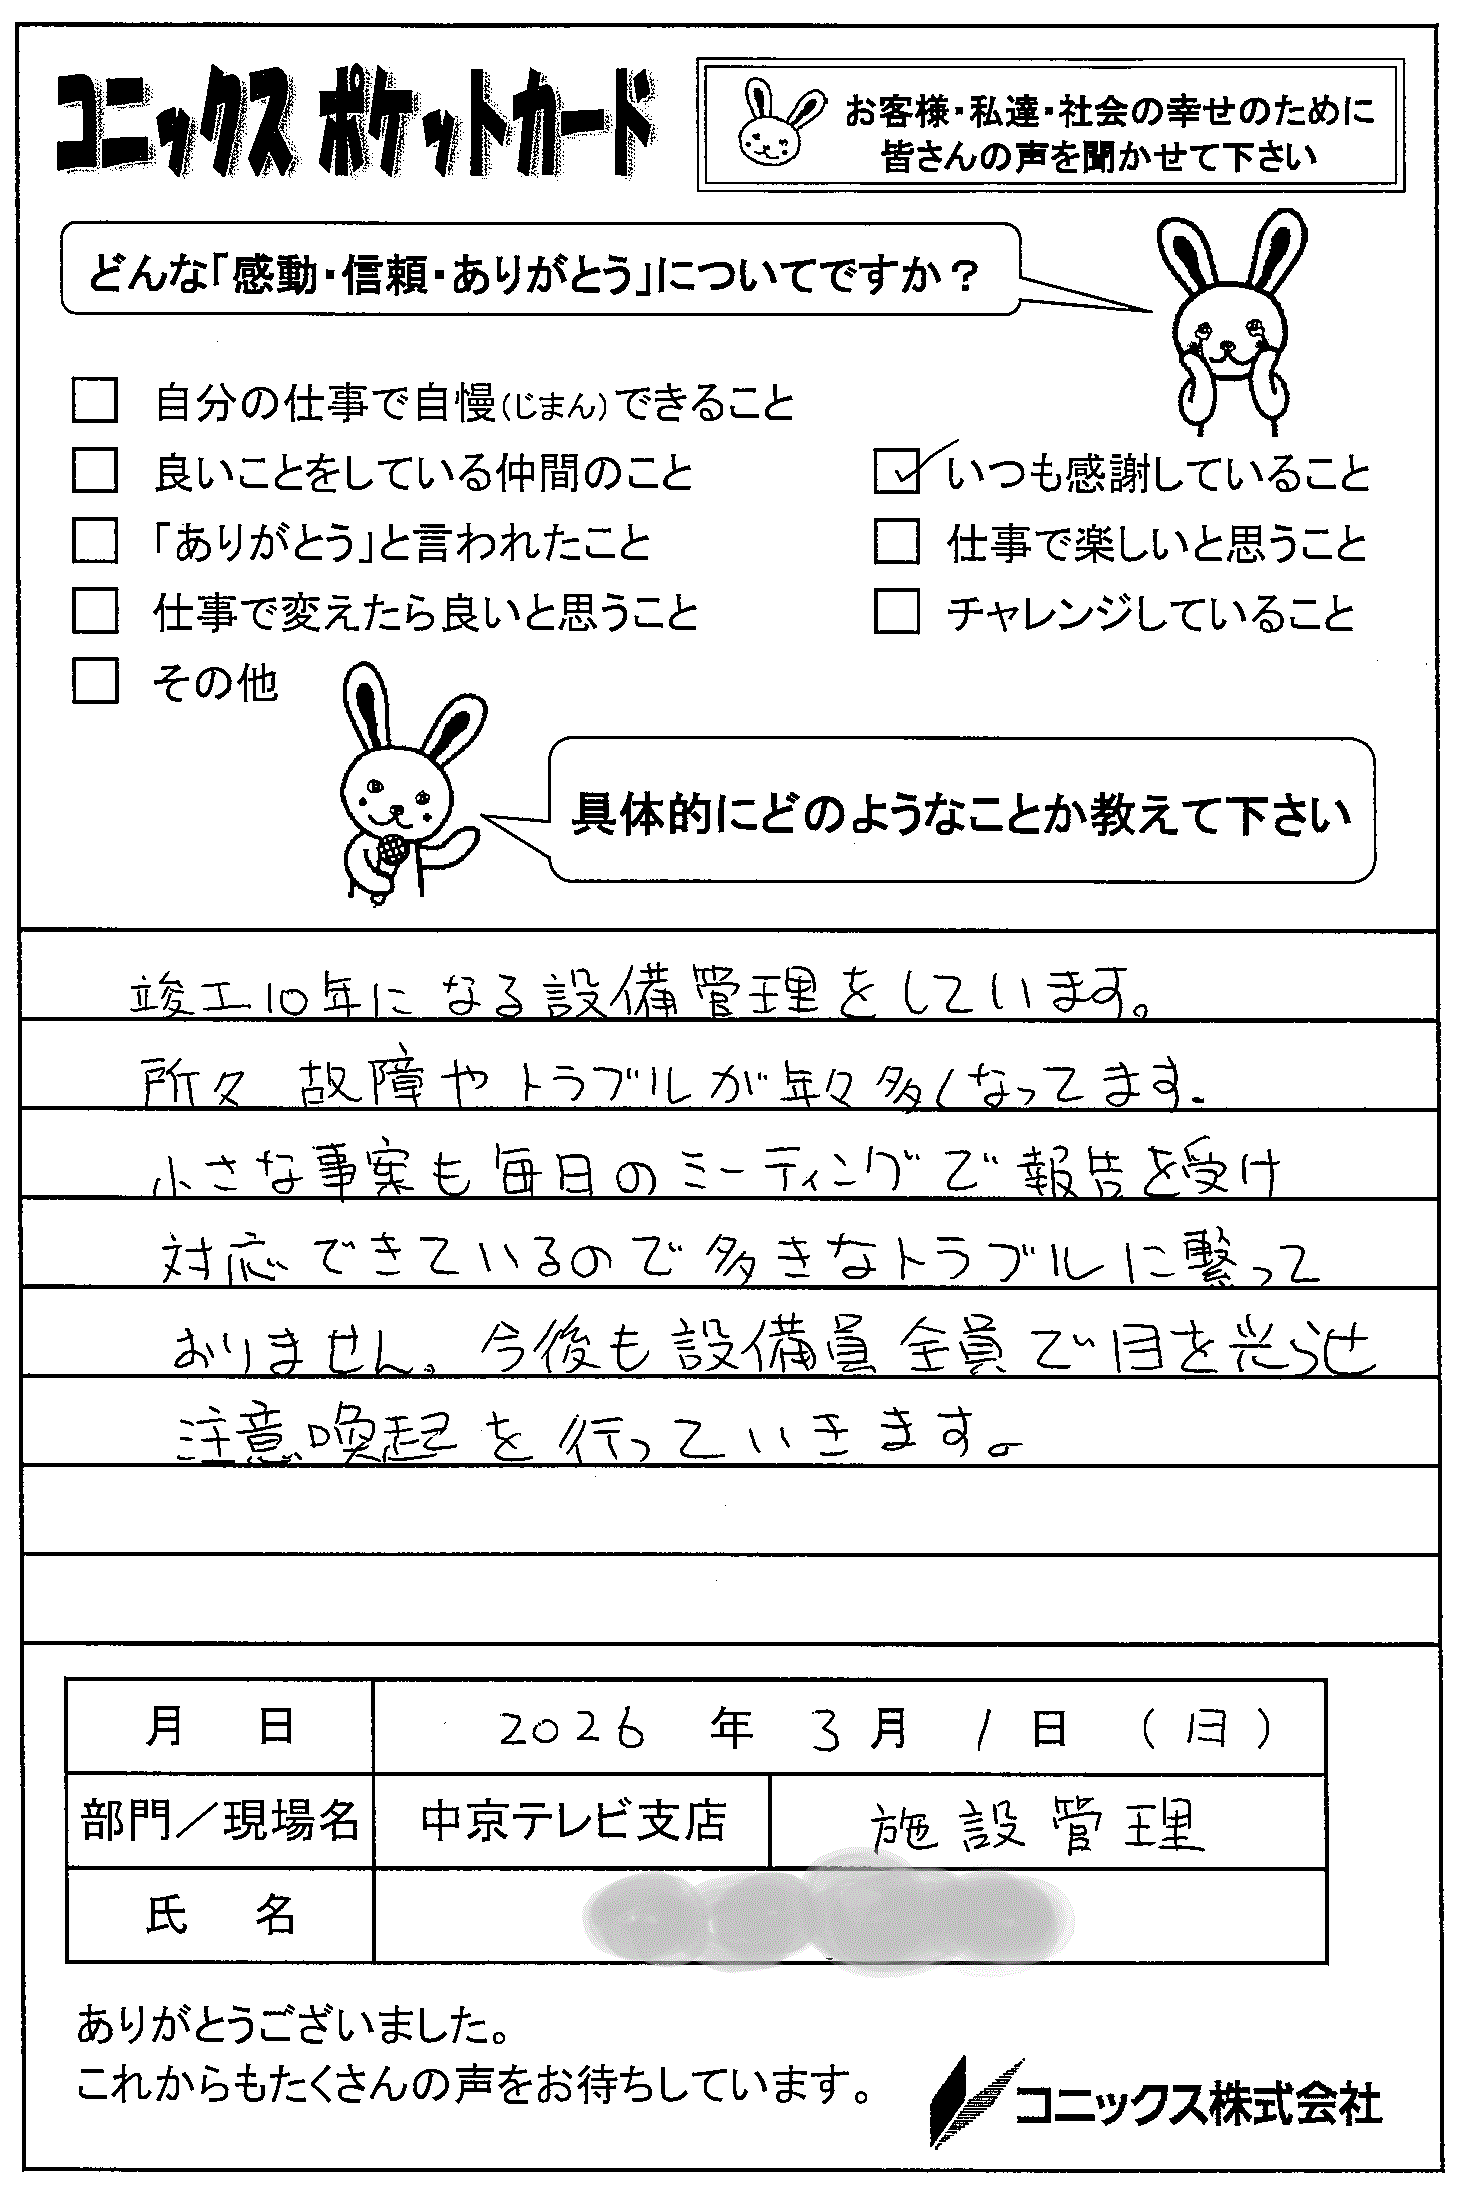 コニックス ポケットカード
お客様・私達・社会の幸せのために
皆さんの声を聞かせて下さい
どんな「感動・信頼・ありがとう」についてですか？
自分の仕事で自慢(じまん)できること
良いことをしている仲間のこと
いつも感謝していること
「ありがとう」と言われたこと
仕事で楽しいと思うこと
仕事で変えたら良いと思うこと
チャレンジしていること
その他
具体的にどのようなことか教えて下さい
竣工10年になる設備管理をしています。
所々 故障やトラブルが年々多くなってます.
小さな事案も毎日のミーティングで報告を受け
対応できているので多きなトラブルに繋って
おりません。今後も設備員全員で目を光らせ
注意喚起を行っていきます。
月 日 2026 年 3 月 1 日 (日)
部門／現場名 中京テレビ支店 施設管理
氏 名
ありがとうございました。
これからもたくさんの声をお待ちしています。
コニックス株式会社